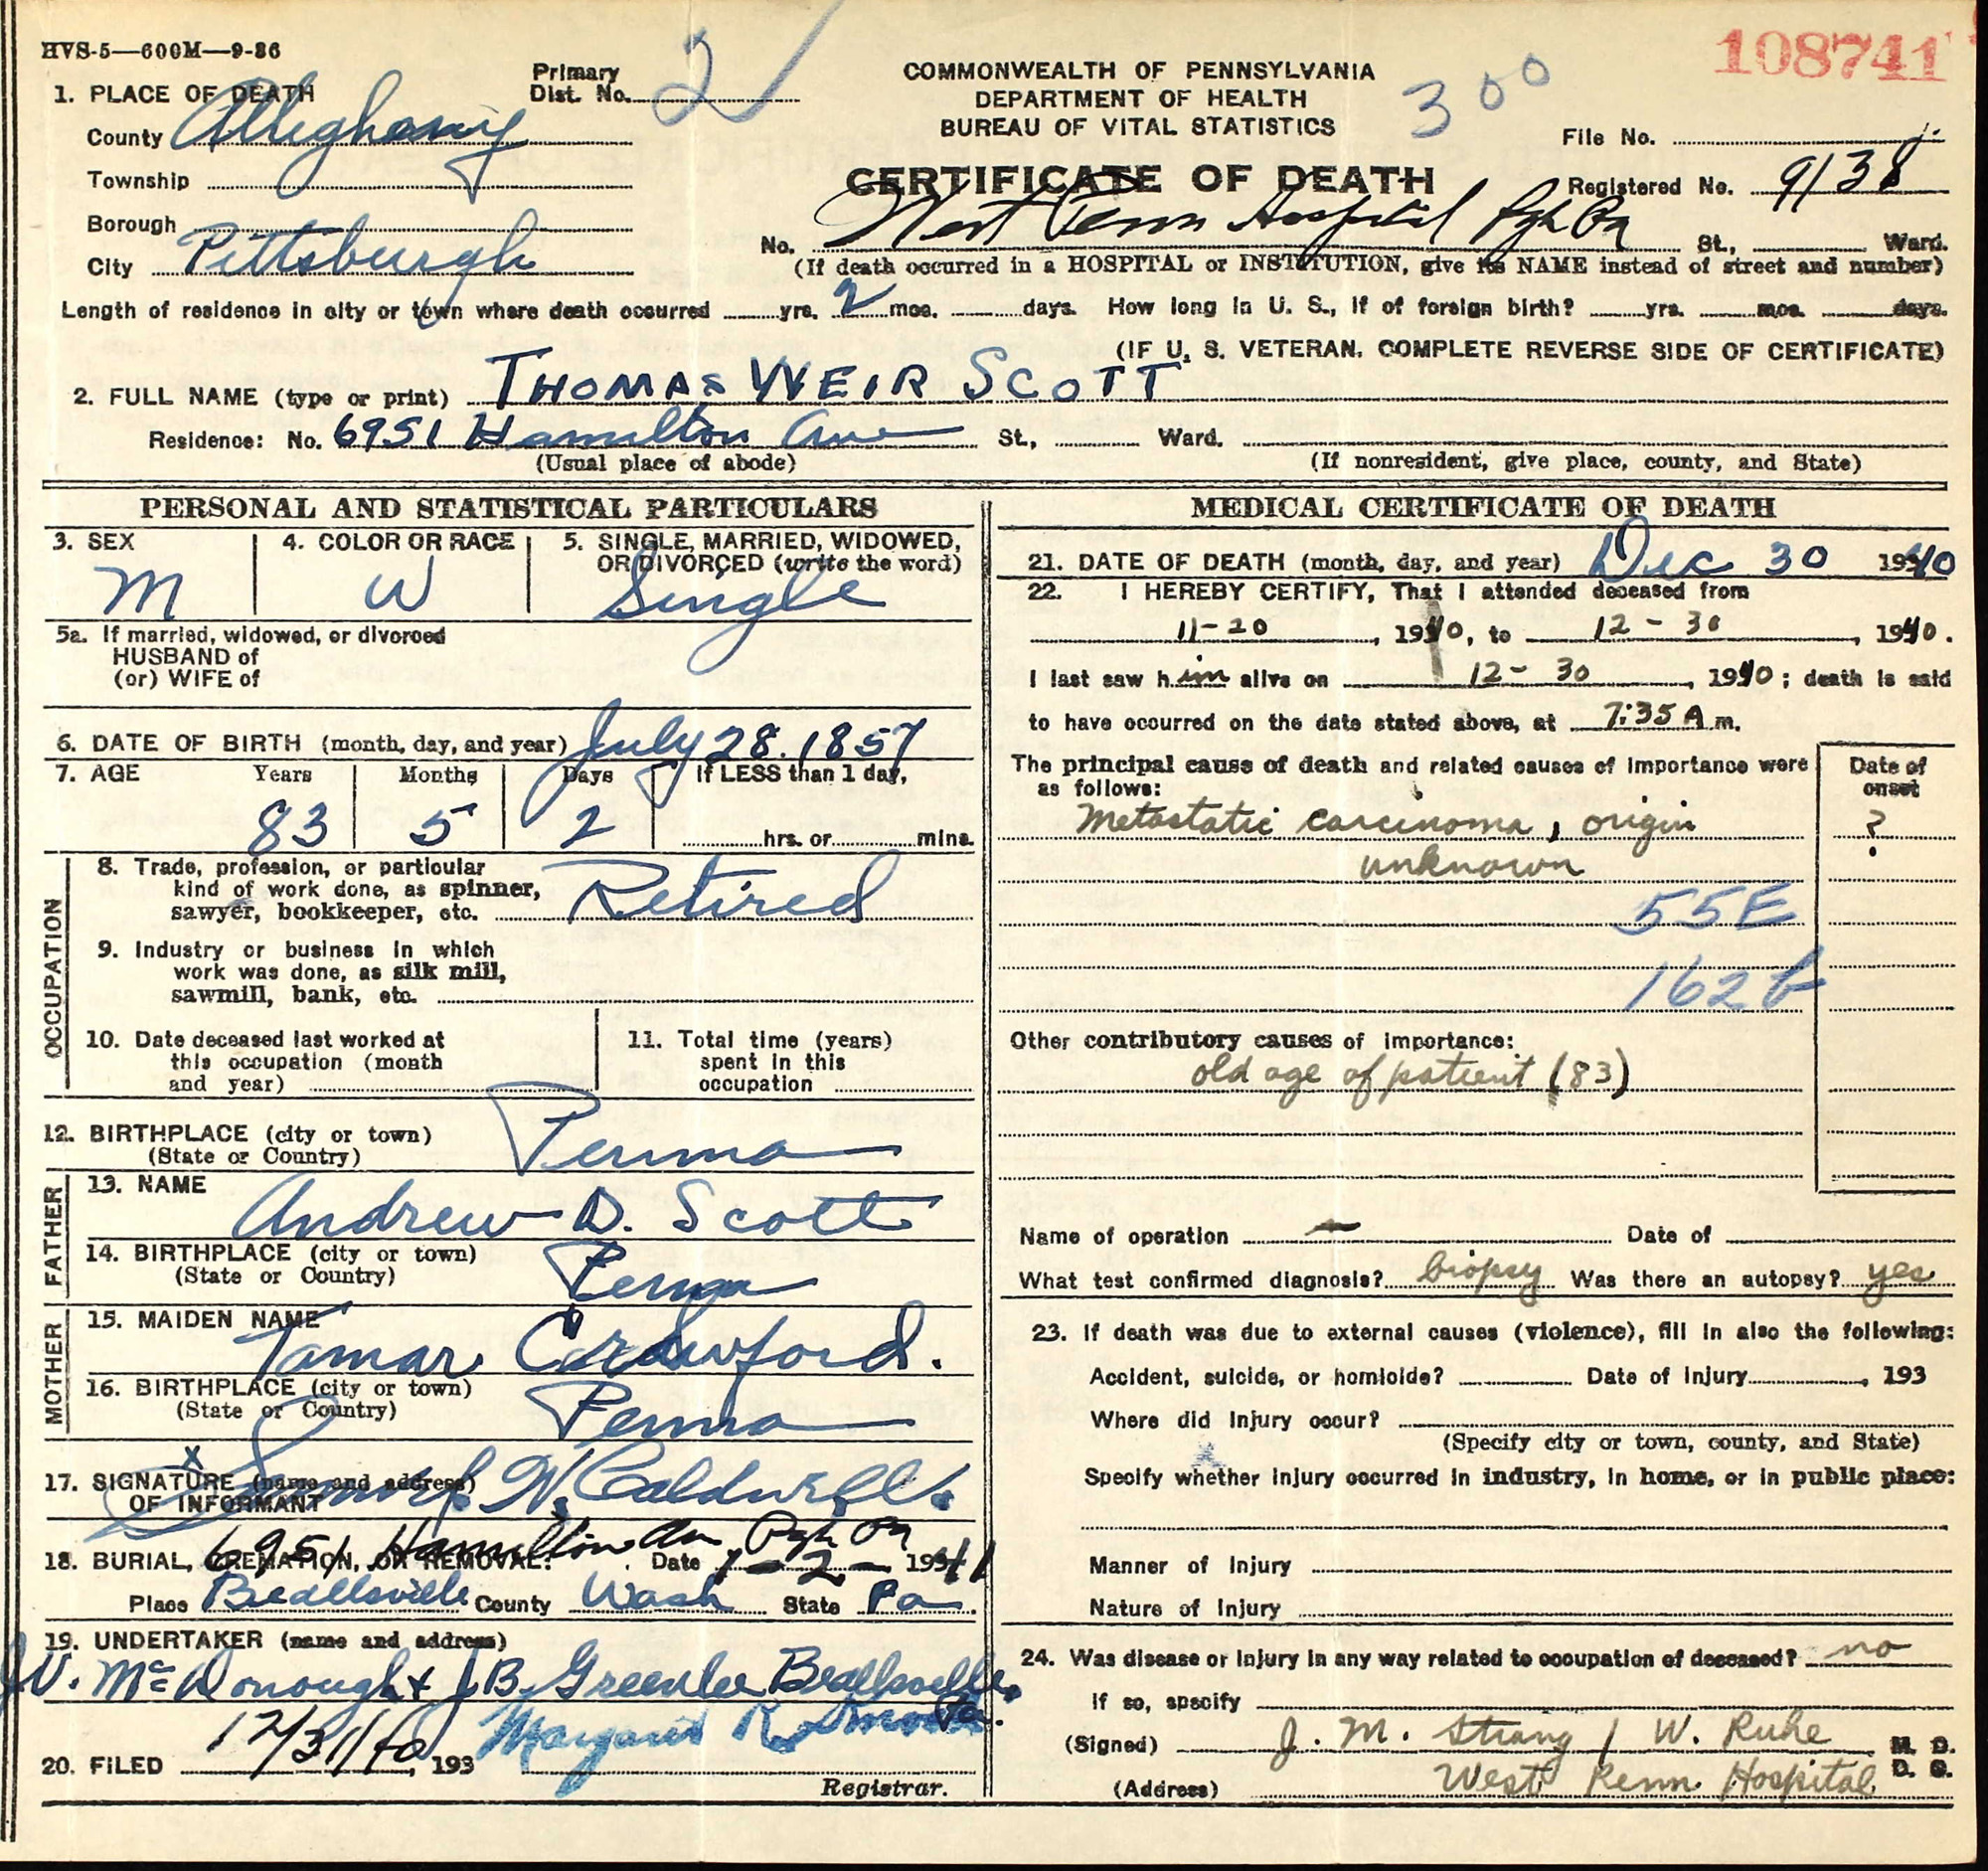 HVS-5—600M—9-36
108741
COMMONWEALTH OF PENNSYLVANIA
DEPARTMENT OF HEALTH
BUREAU OF VITAL STATISTICS
300
CERTIFICATE OF DEATH
1. PLACE OF DEATH
Primary
Dist. No. 2
County Allegheny
Township
Borough
City Pittsburgh
File No.
Registered No. 9138
No. West Penn Hospital Pgh Pa St., Ward.
(If death occurred in a HOSPITAL or INSTITUTION, give its NAME instead of street and number)
Length of residence in city or town where death occurred yrs. 2 mos. days. How long in U. S., if of foreign birth? yrs. mos. days.
(IF U. S. VETERAN, COMPLETE REVERSE SIDE OF CERTIFICATE)
2. FULL NAME (type or print) THOMAS WEIR SCOTT
Residence: No. 6951 Hamilton Ave St., Ward.
(Usual place of abode) (If nonresident, give place, county, and State)
PERSONAL AND STATISTICAL PARTICULARS
3. SEX
M
4. COLOR OR RACE
W
5. SINGLE, MARRIED, WIDOWED,
OR DIVORCED (write the word)
Single
5a. If married, widowed, or divorced
HUSBAND of
(or) WIFE of
6. DATE OF BIRTH (month, day, and year) July 28. 1857
7. AGE Years Months Days If LESS than 1 day,
83 5 2 hrs. or mins.
OCCUPATION
8. Trade, profession, or particular
kind of work done, as spinner,
sawyer, bookkeeper, etc. Retired
9. Industry or business in which
work was done, as silk mill,
sawmill, bank, etc.
10. Date deceased last worked at
this occupation (month
and year)
11. Total time (years)
spent in this
occupation
12. BIRTHPLACE (city or town)
(State or Country) Penna
FATHER
13. NAME
Andrew D. Scott
14. BIRTHPLACE (city or town)
(State or Country) Penna
MOTHER
15. MAIDEN NAME
Tamar Crawford.
16. BIRTHPLACE (city or town)
(State or Country) Penna
X
17. SIGNATURE (name and address)
OF INFORMANT W. Caldwell.
6951 Hamilton Av Pgh Pa
18. BURIAL, CREMATION, OR REMOVAL: Date 1-2- 1941
Place Beallsville County Wash State Pa.
19. UNDERTAKER (name and address)
J.V. McDonough & J B. Greenlee Beallsville, Pa.
20. FILED 12/31/40, 193 Margaret R.
Registrar.
MEDICAL CERTIFICATE OF DEATH
21. DATE OF DEATH (month, day, and year) Dec 30 1940
22. I HEREBY CERTIFY, That I attended deceased from
11-20, 1940, to 12-30, 1940.
I last saw him alive on 12-30, 1940; death is said
to have occurred on the date stated above, at 7:35 A m.
The principal cause of death and related causes of importance were
as follows:
Date of
onset
Metastatic carcinoma, origin ?
unknown
55E
162b
Other contributory causes of importance:
old age of patient (83)
Name of operation — Date of
What test confirmed diagnosis? biopsy Was there an autopsy? yes
23. If death was due to external causes (violence), fill in also the following:
Accident, suicide, or homicide? Date of Injury, 193
Where did Injury occur?
(Specify city or town, county, and State)
Specify whether Injury occurred in industry, in home, or in public place:
Manner of Injury
Nature of Injury
24. Was disease or Injury in any way related to occupation of deceased? no
If so, specify
(Signed) J. M. Strang / W. Ruhe M. D.
D. O.
(Address) West Penn. Hospital